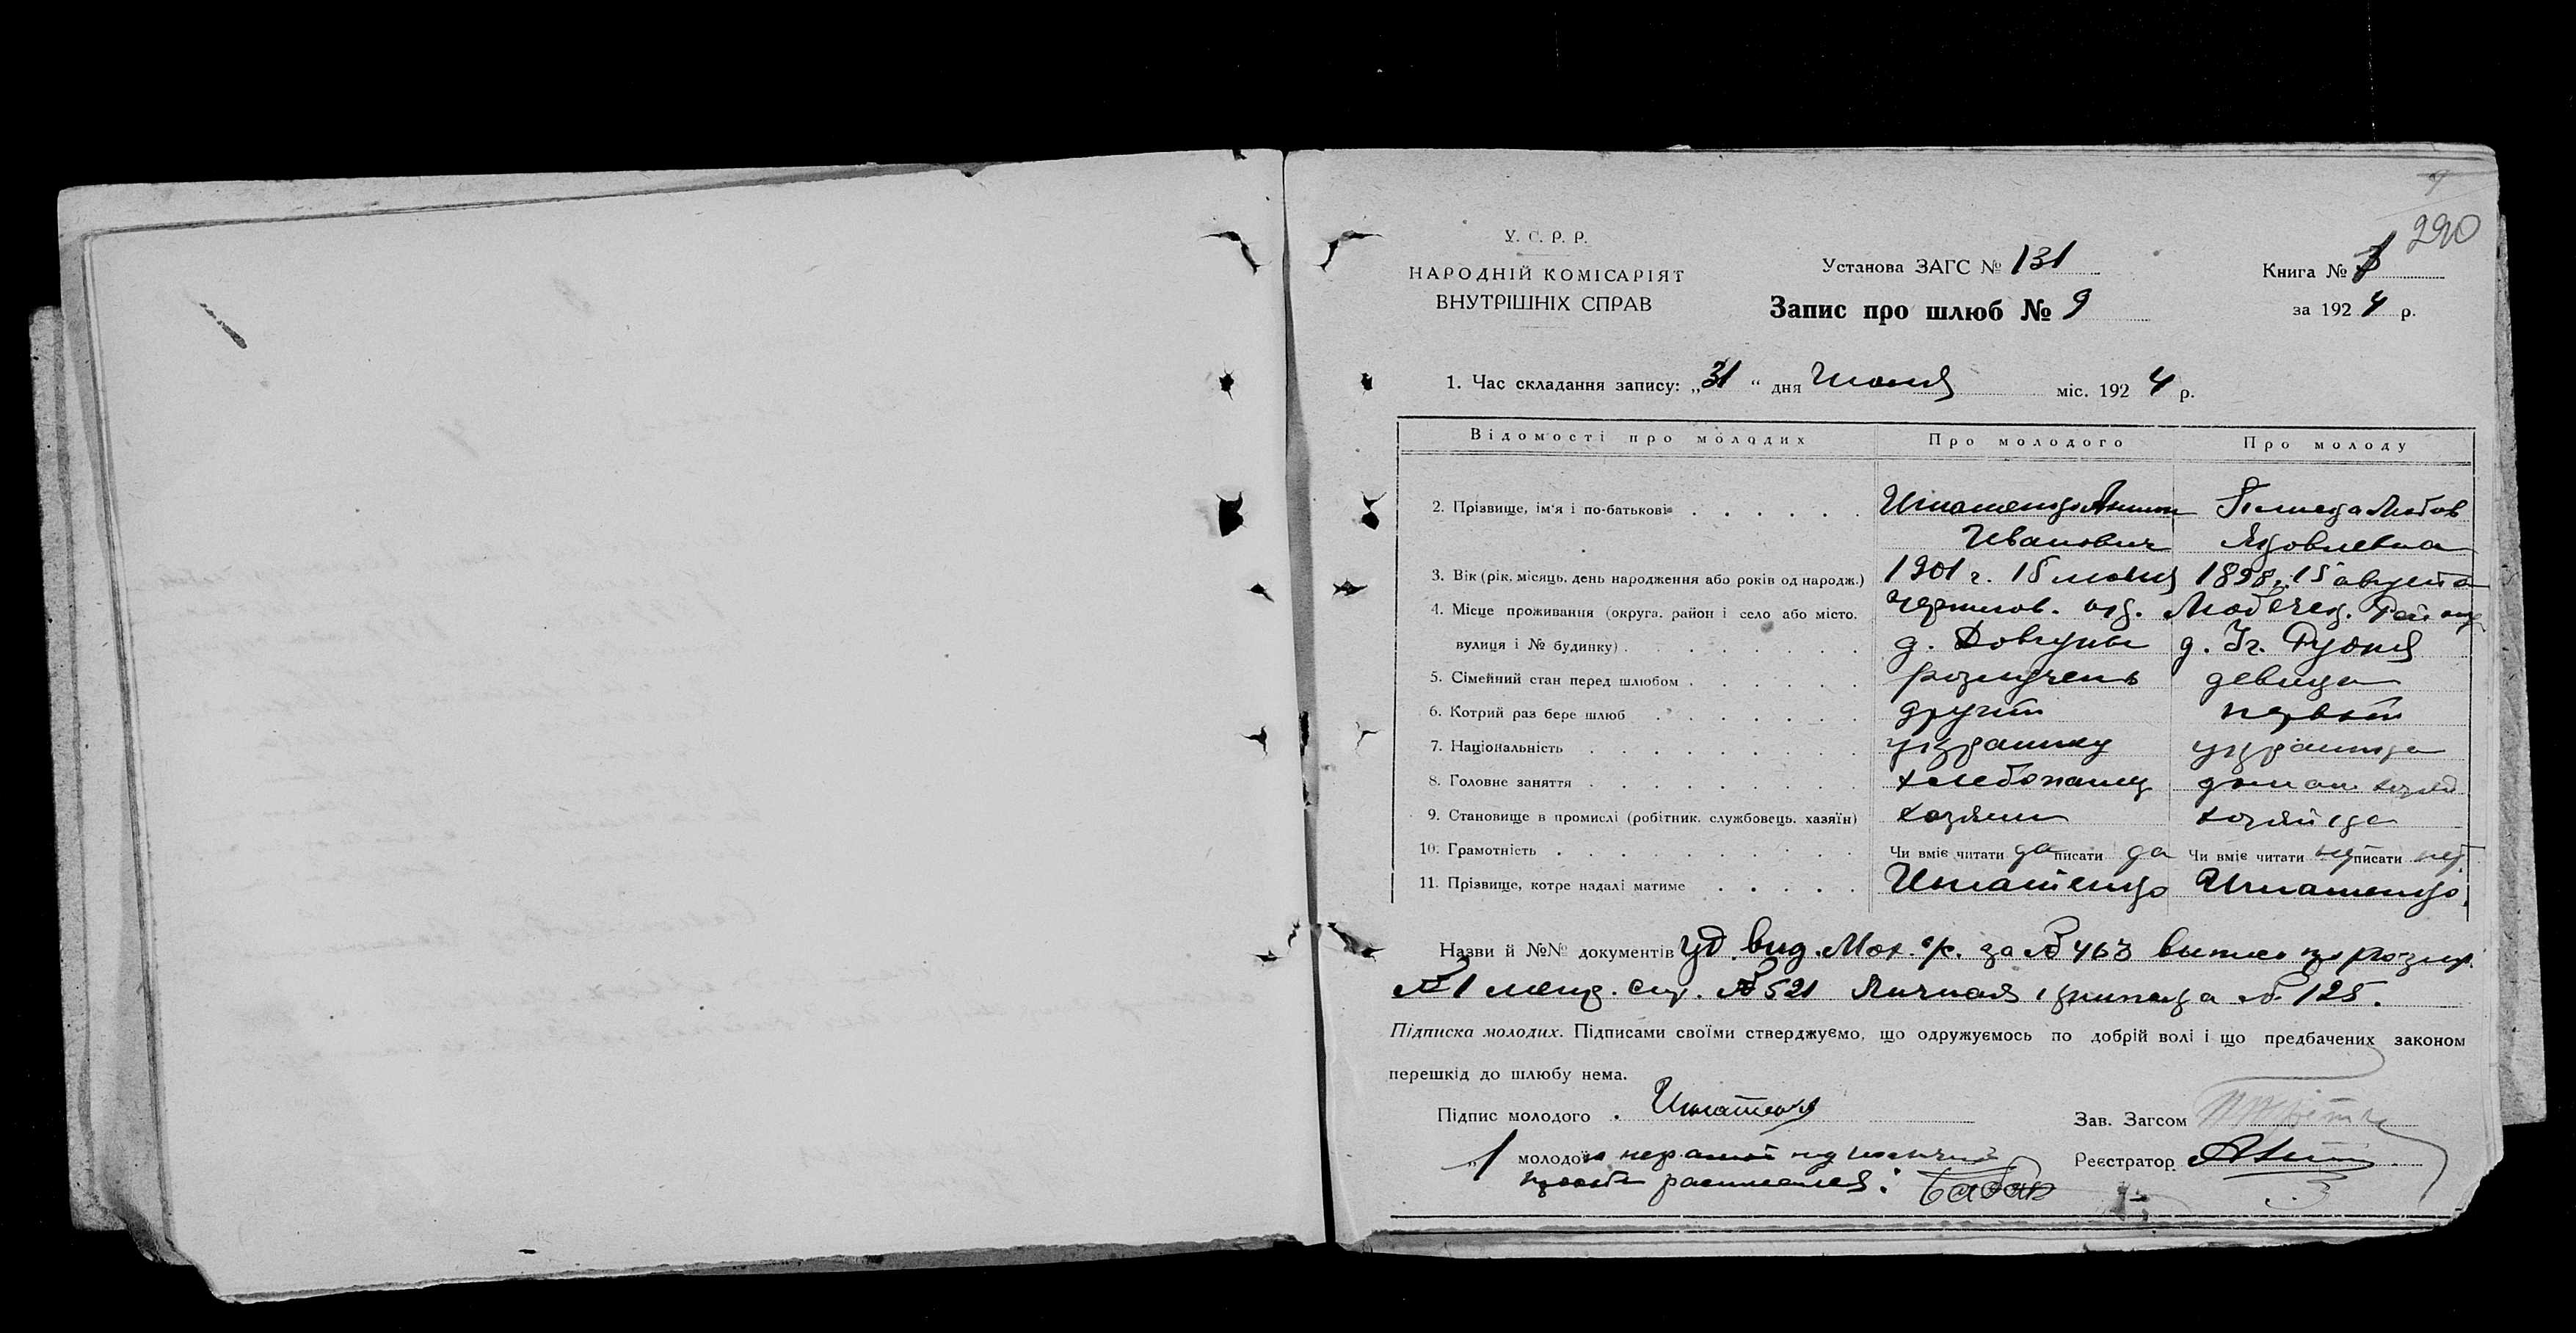 290
У. С. Р. Р.
НАРОДНІЙ КОМІСАРІЯТ
ВНУТРІШНІХ СПРАВ
Установа ЗАГС № 131
Запис про шлюб № 9
Книга №
за 1924 р.
1. Час складання запису: „31“ дня міс. 1924 р.
Відомості про молодих Про молодого Про молоду
2. Прізвище, ім'я і по-батькові Игнатенко Антон Любов
Иванович Яковлевна
3. Вік (рік, місяць, день народження або років од народж.) 1901 г. 15 1898 г. 15 августа
4. Місце проживання (округа, район і село або місто, Чернигов. окр. Любеч. Район
вулиця і № будинку) д. Ковгуны д. Іг. Рудня
5. Сімейний стан перед шлюбом розлучень девица
6. Котрий раз бере шлюб другий первый
7. Національність украинец украинка
8. Головне заняття хлебопашец домаш. хозяй
9. Становище в промислі (робітник, службовець, хазяїн) хозяин хозяйка
10. Грамотність Чи вміє читати да писати да Чи вміє читати нет писати нет
11. Прізвище, котре надалі матиме Игнатенко Игнатенко
Назви й №№ документів уд. вид. за № 463 выпис
№ 1 № 521 Личная карточка № 125.
Підписка молодих. Підписами своїми стверджуємо, що одружуємось по добрій волі і що предбачених законом
перешкід до шлюбу нема.
Підпис молодого Игнатенко Зав. Загсом
„ молодої Реєстратор
расписался: